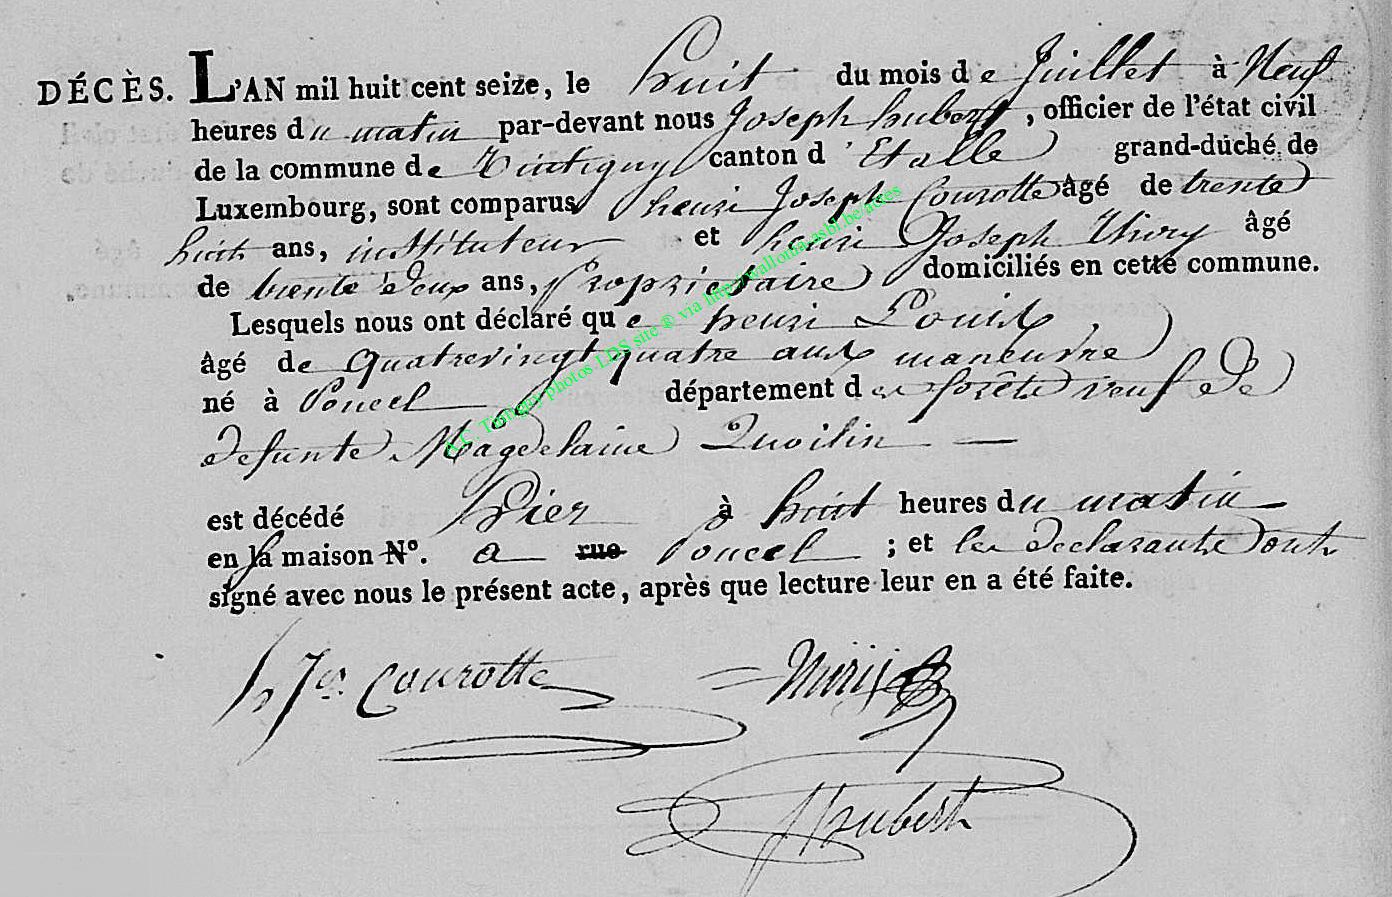 DÉCÈS. L'AN mil huit cent seize, le huit du mois de Juillet à Neuf
heures du matin par-devant nous Joseph hubert, officier de l'état civil
de la commune de Tintigny canton d'Etalle grand-duché de
Luxembourg, sont comparus henri Joseph Courotte âgé de trente
huit ans, instituteur et henri Joseph Thiry âgé
de trente deux ans, Proprietaire domiciliés en cette commune.
Lesquels nous ont déclaré que henri Louis,
âgé de Quatrevingt quatre ans maneuvre
né à Poncel département des forêts veuf de
defunte Magdelaine Quoilin
est décédé hier à huit heures du matin
en la maison N°. a rue Poncel ; et les declarants ont
signé avec nous le présent acte, après que lecture leur en a été faite.
h Jh Courotte Thiry
Hubert
A.C. Tintigny photos LDS site ® via http://wallonia-asbl.be/actes